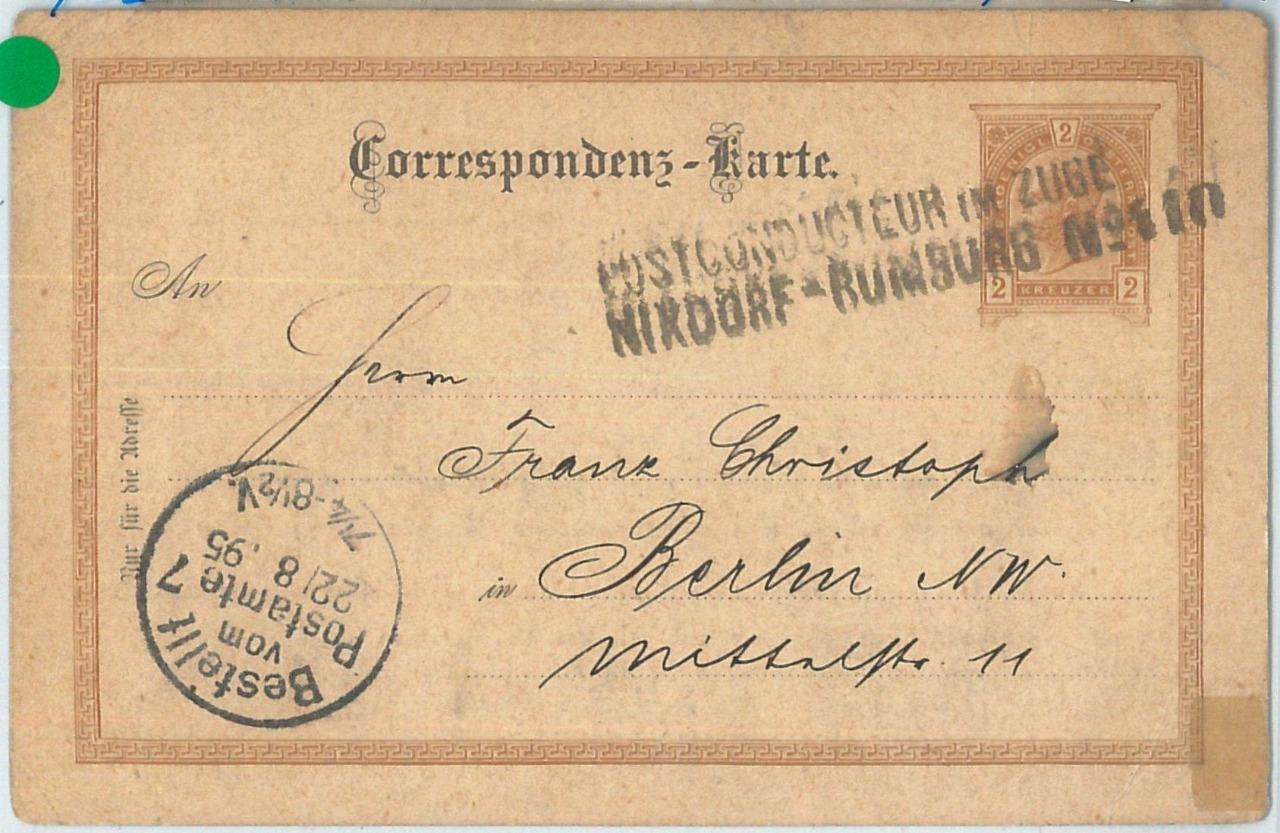 Correspondenz-Karte.
POSTCONDUCTEUR IM ZUGE
NIXDORF-RUMBURG No 110
2
2 KREUZER 2
An
Herrn
Franz Christoph
in Berlin NW.
Mittelstr. 11
Nur für die Adresse
Bestellt
vom
Postamte 7
22/8.95
7¼-8½V.